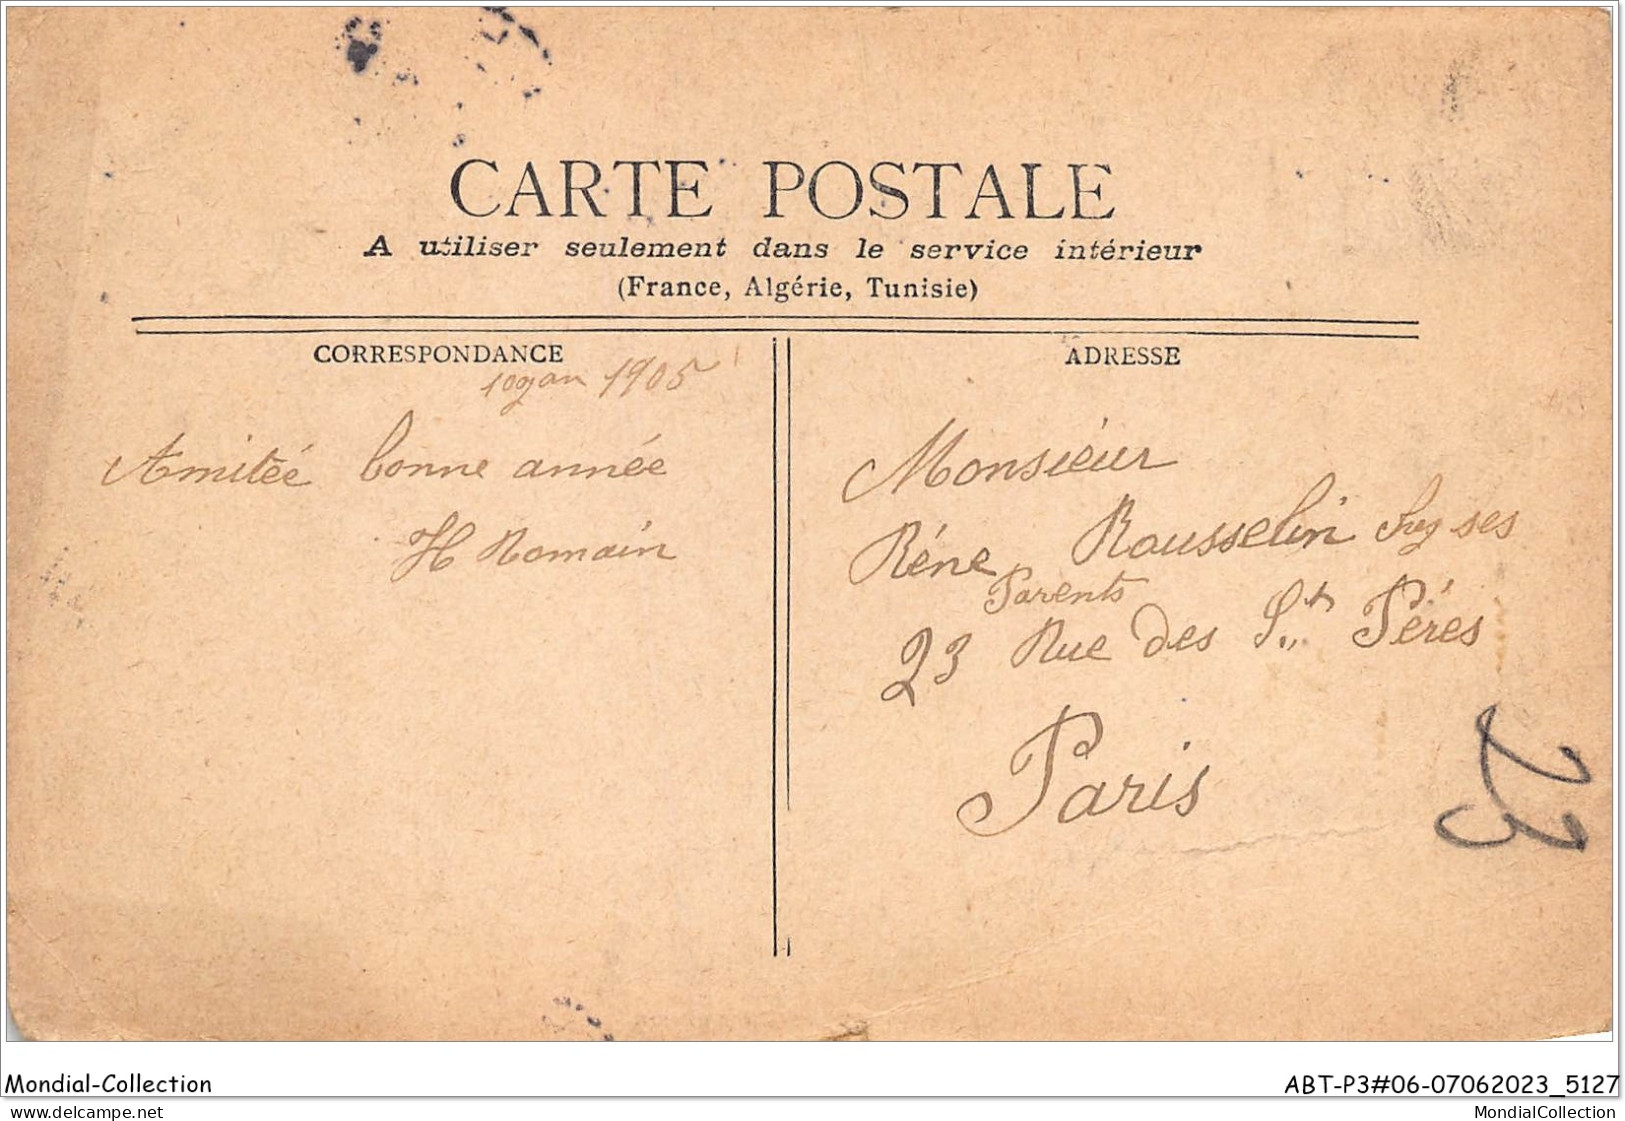 CARTE POSTALE
A utiliser seulement dans le service intérieur
(France, Algérie, Tunisie)
CORRESPONDANCE
1905
Amiteé bonne année
H Romain
ADRESSE
Monsiéur
Réne Rousselin chez ses
Parents
23 Rue des Sts Pérés
Paris
23
Mondial-Collection
ABT-P3#06-07062023_5127
www.delcampe.net
MondialCollection